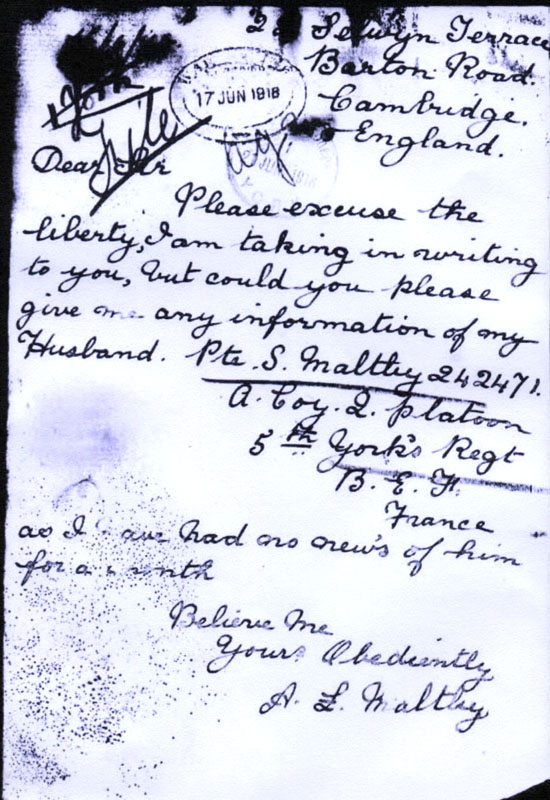 Selwyn Terrace
Barton Road.
Cambridge.
England.
17 JUN 1918
Dear Sir
Please excuse the
liberty, I am taking in writing
to you, but could you please
give me any information of my
Husband. Pte. S. Maltby 242471.
A. Coy. 2. platoon
5th York's Regt
B. E. F.
France
as I have had no news of him
for a month
Believe Me
Yours Obediently
A. L. Maltby